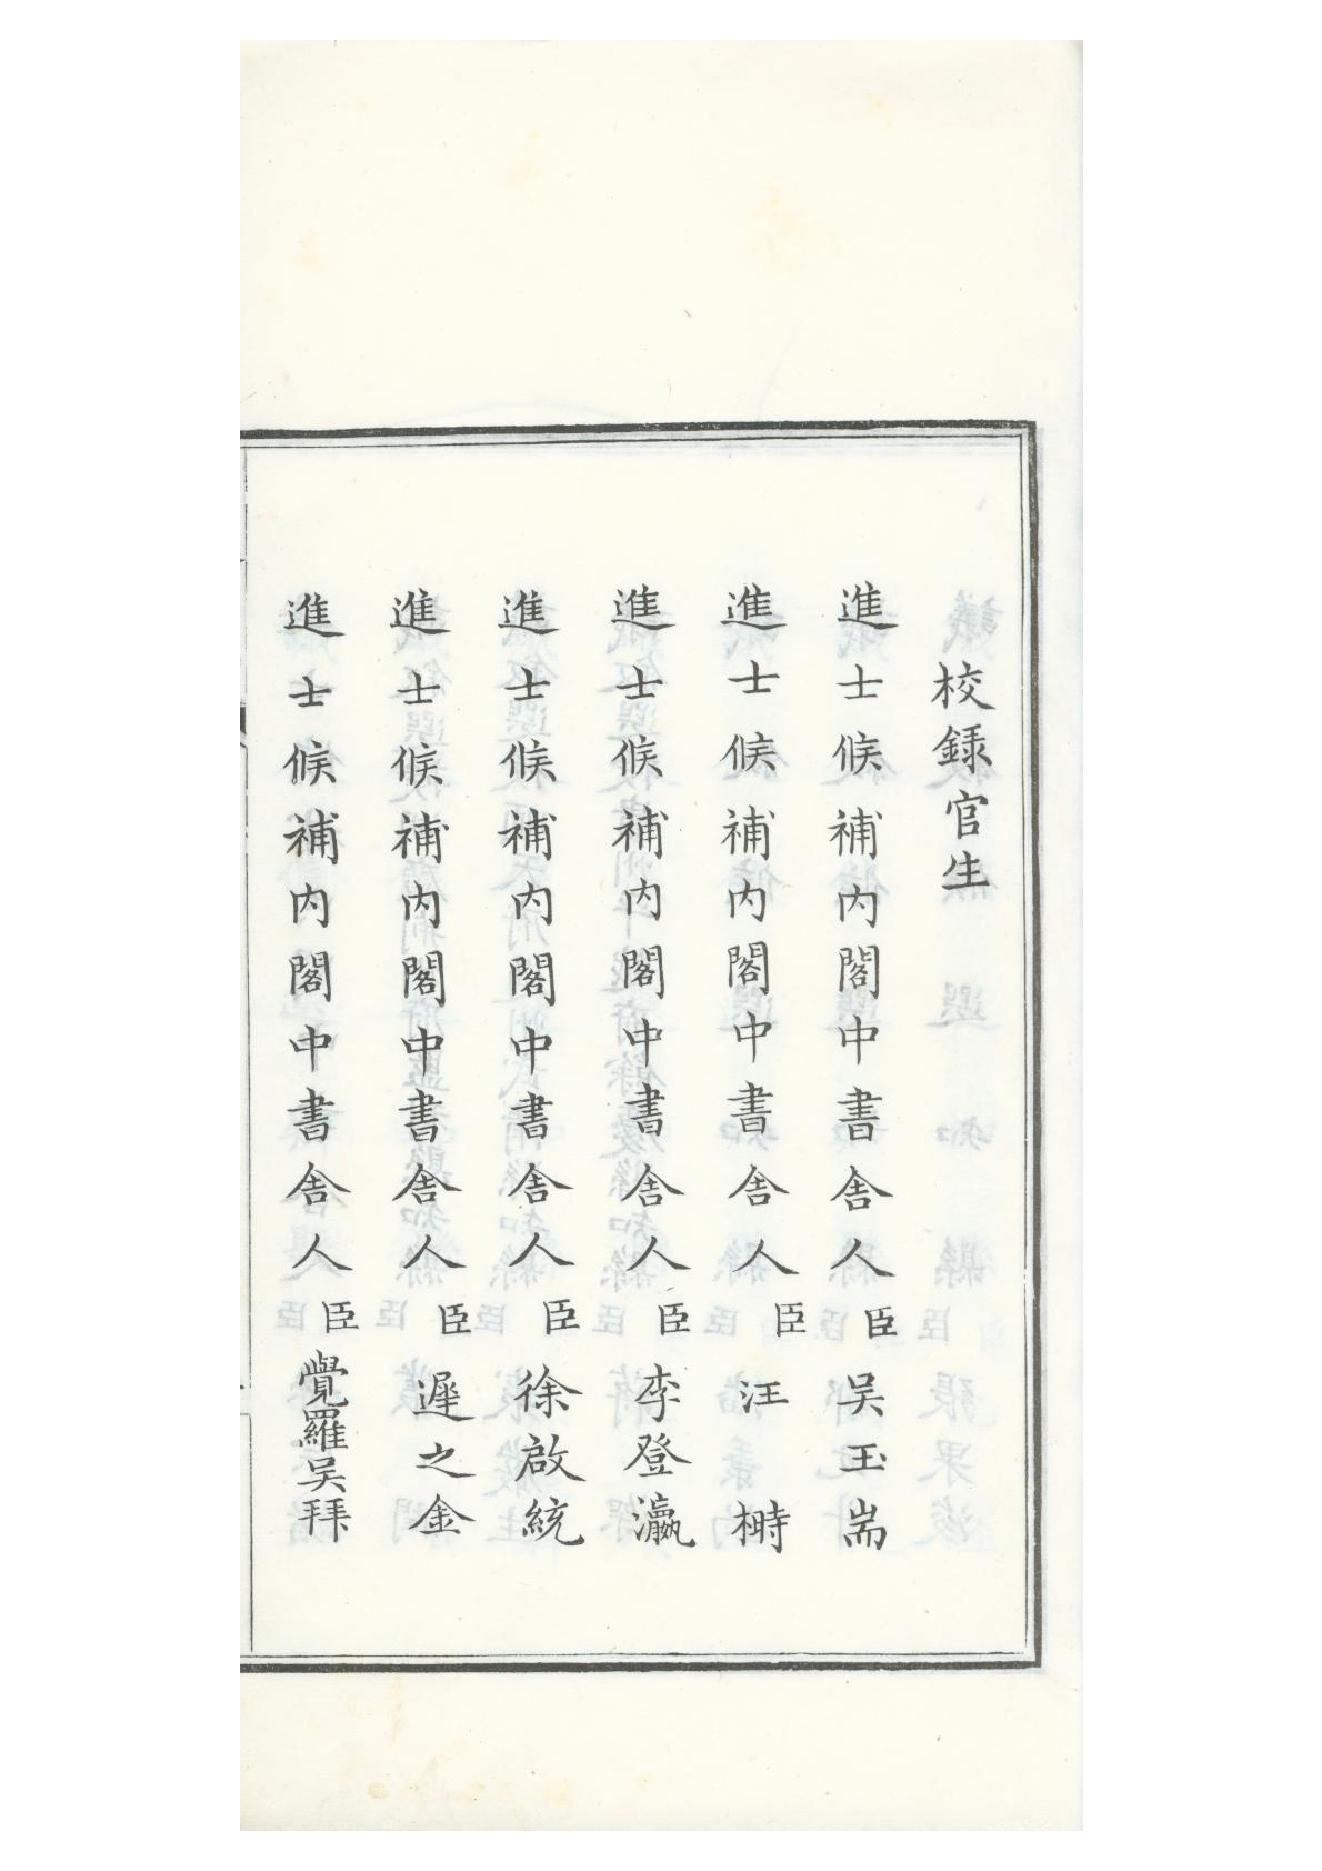 校録官生
進士候補內閣中書舍人臣吴玉耑
進士候補內閣中書舍人臣汪榯
進士候補內閣中書舍人臣李登瀛
進士候補內閣中書舍人臣徐啟統
進士候補內閣中書舍人臣遲之金
進士候補內閣中書舍人臣覺羅吴拜